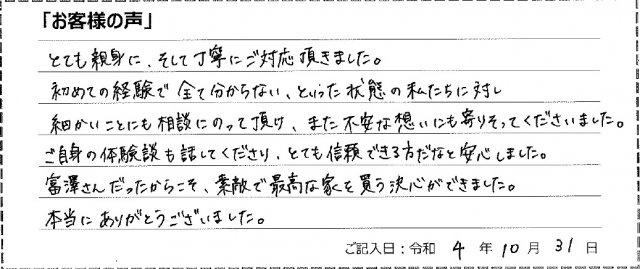 「お客様の声」
とても親身に、そして丁寧にご対応頂きました。
初めての経験で全て分からない、といった状態の私たちに対し
細かいことにも相談にのって頂け、また不安な想いにも寄りそってくださいました。
ご自身の体験談も話してくださり、とても信頼できる方だなと安心しました。
富澤さんだったからこそ、素敵で最高な家を買う決心ができました。
本当にありがとうございました。
ご記入日：令和 4 年 10 月 31 日